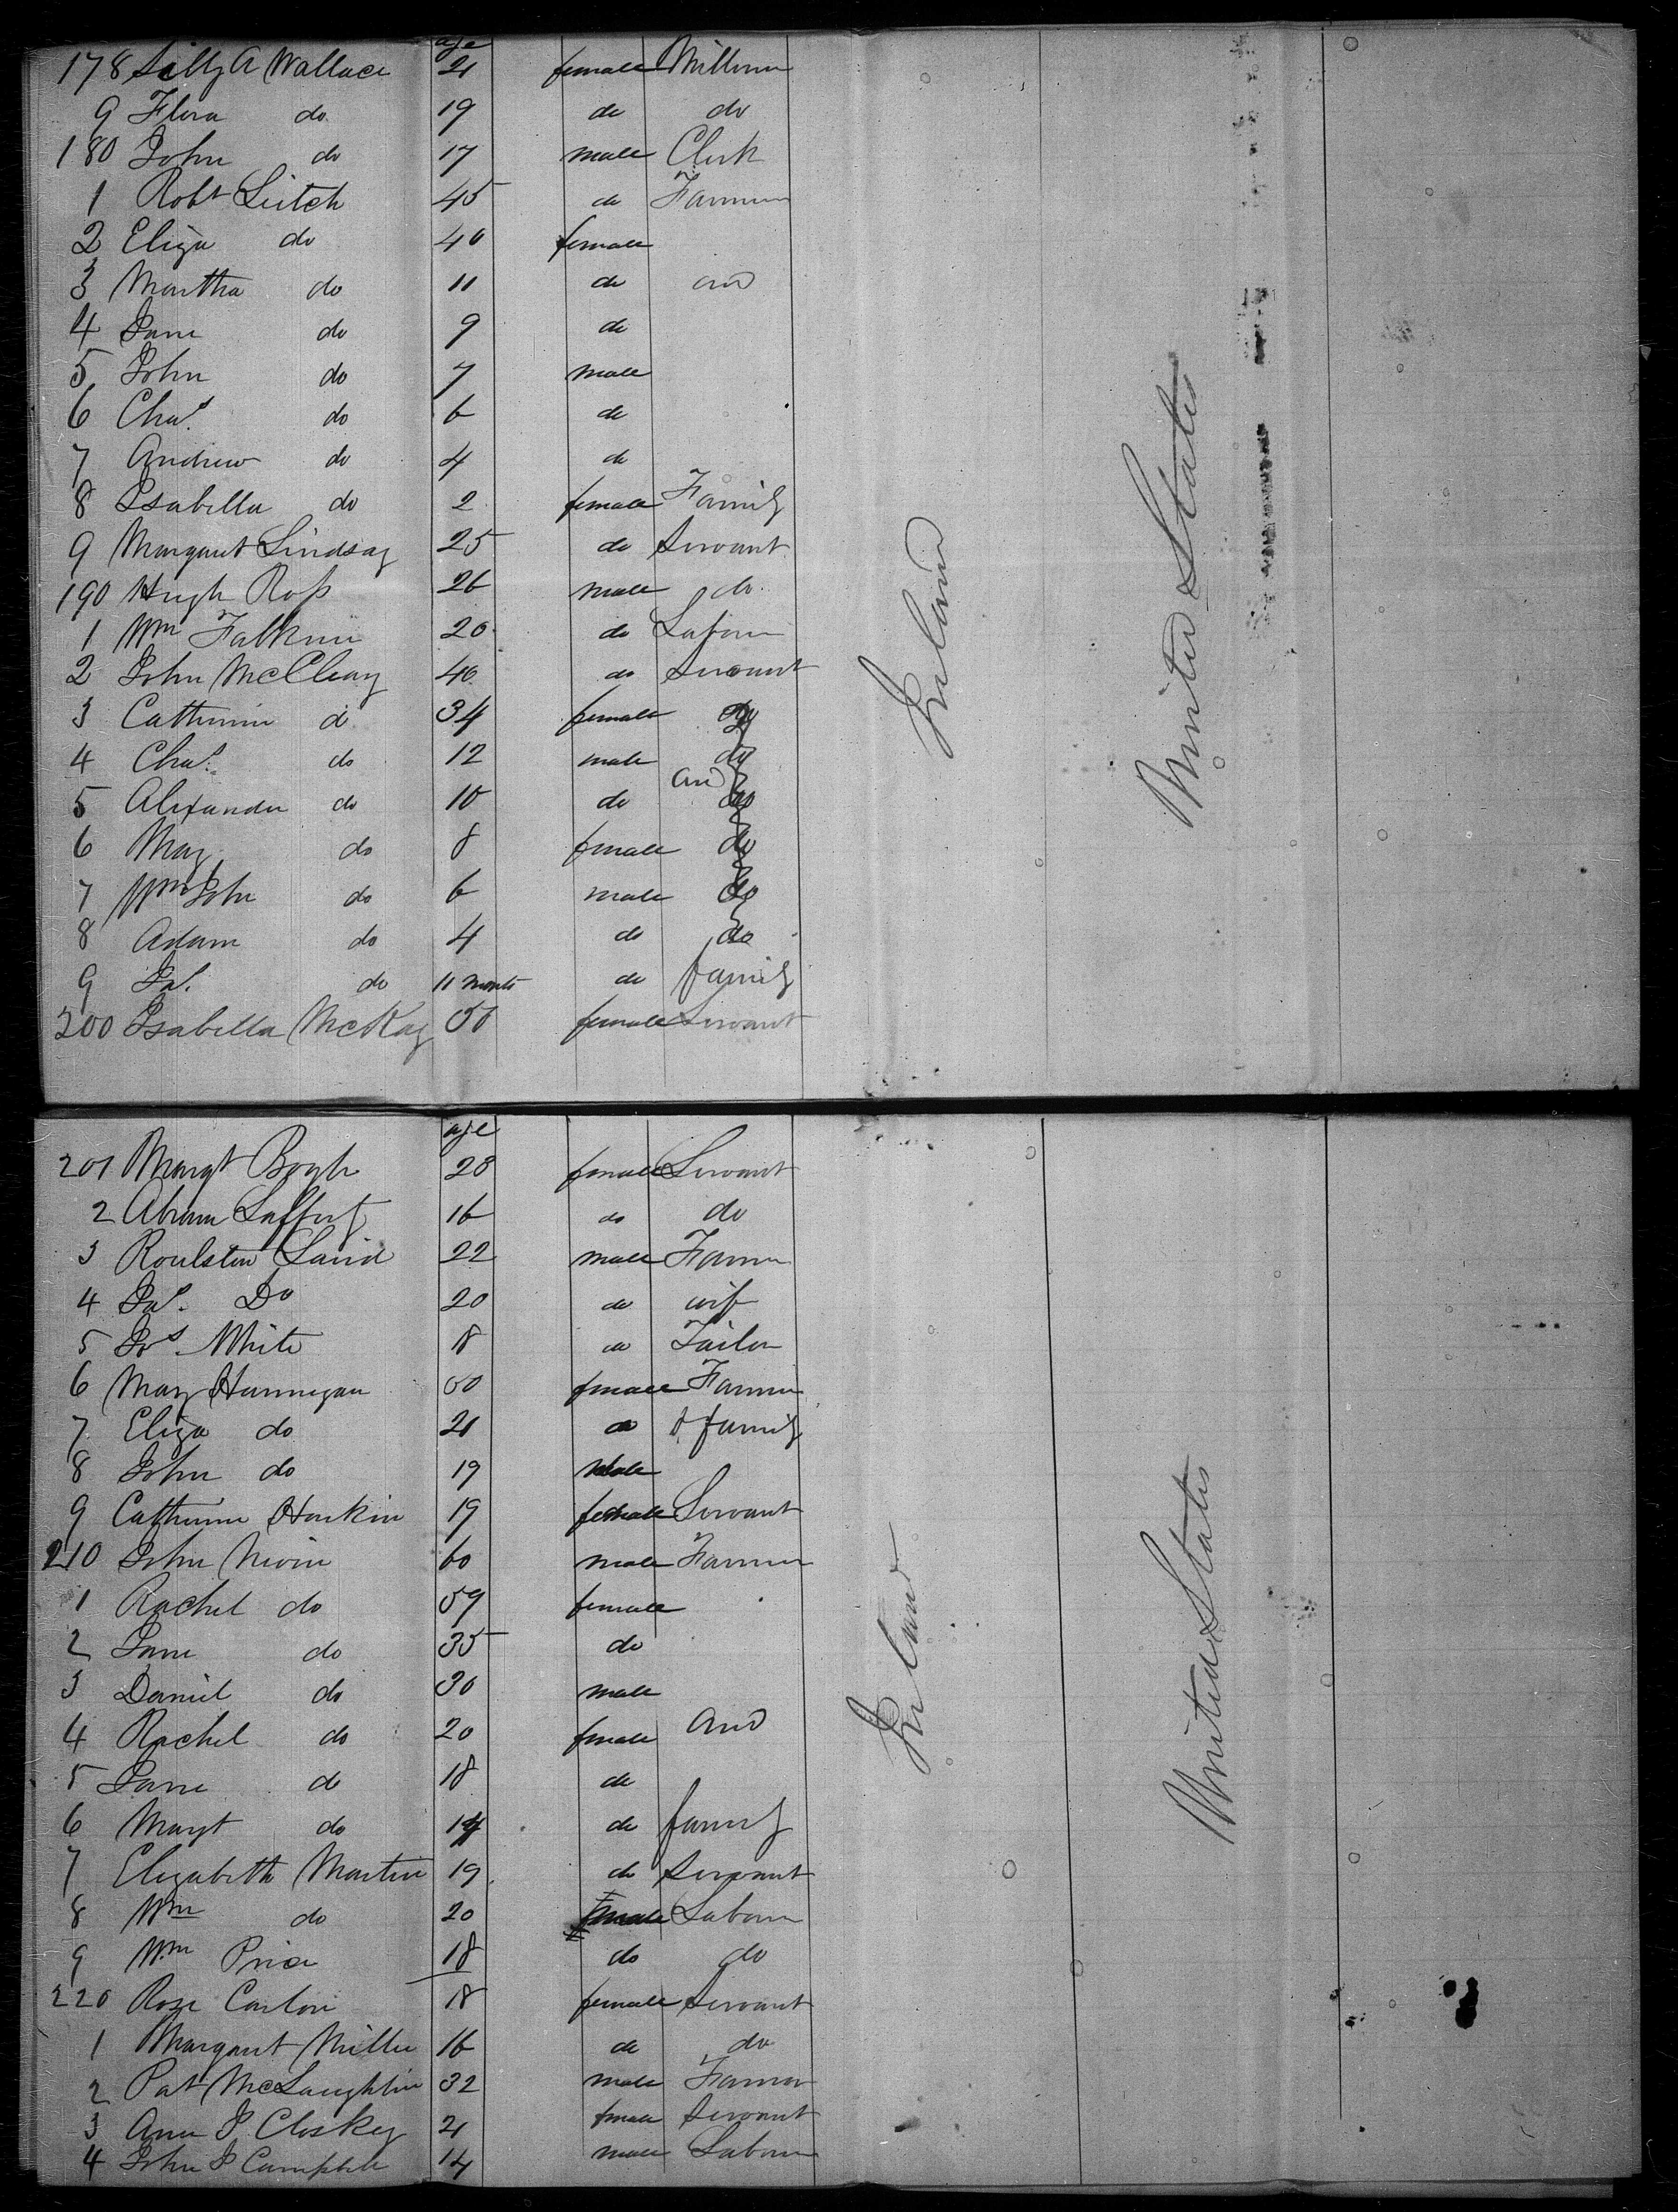 age
178 Lilly A Wallace 21 female Milliner
9 Flora do 19 do do
180 John do 17 male Clerk
1 Robt Leitch 45 do Farmer
2 Eliza do 40 female
3 Martha do 11 do and
4 Jane do 9 do
5 John do 7 male
6 Chas. do 6 do
7 Andrew do 4 do
8 Isabella do 2 female Family
9 Margaret Lindsay 25 do Servant
190 Hugh Ross 26 male do
1 Wm Falkner 20 do Labour
2 John McCleary 40 do Servant
3 Catherine d 34 female do
4 Chas. do 12 male do
and
5 Alexander do 10 do do
6 Mary do 8 female do
7 Wm John do 6 male do
8 Adam do 4 do do
9 Jas. do 11 months do family
200 Isabella McKay 50 female Servant
Ireland
United States
age
201 Margt Boyle 28 female Servant
2 Abram Lafferty 16 do do
3 Roulston Laird 22 male Farmer
4 Jas. Do 20 do wife
5 Jos White 18 do Tailor
6 Mary Hannigan 50 female Farmer
7 Eliza do 21 do & family
8 John do 19 Male
9 Catherine Harkin 19 female Servant
210 John Nivin 60 male Farmer
1 Rachel do 59 female
2 Jane do 35 do
3 Daniel do 30 male
4 Rachel do 20 female and
5 Jane do 18 do
6 Margt do 14 do family
7 Elizabeth Martin 19 do Servant
8 Wm do 20 male Labour
9 Wm Price 18 do do
220 Rose Carlon 18 female Servant
1 Margaret Miller 16 do do
2 Pat McLaughlin 32 male Farmer
3 Ann J Closkey 21 female Servant
4 John J Campbell 14 male Labour
Ireland
United States